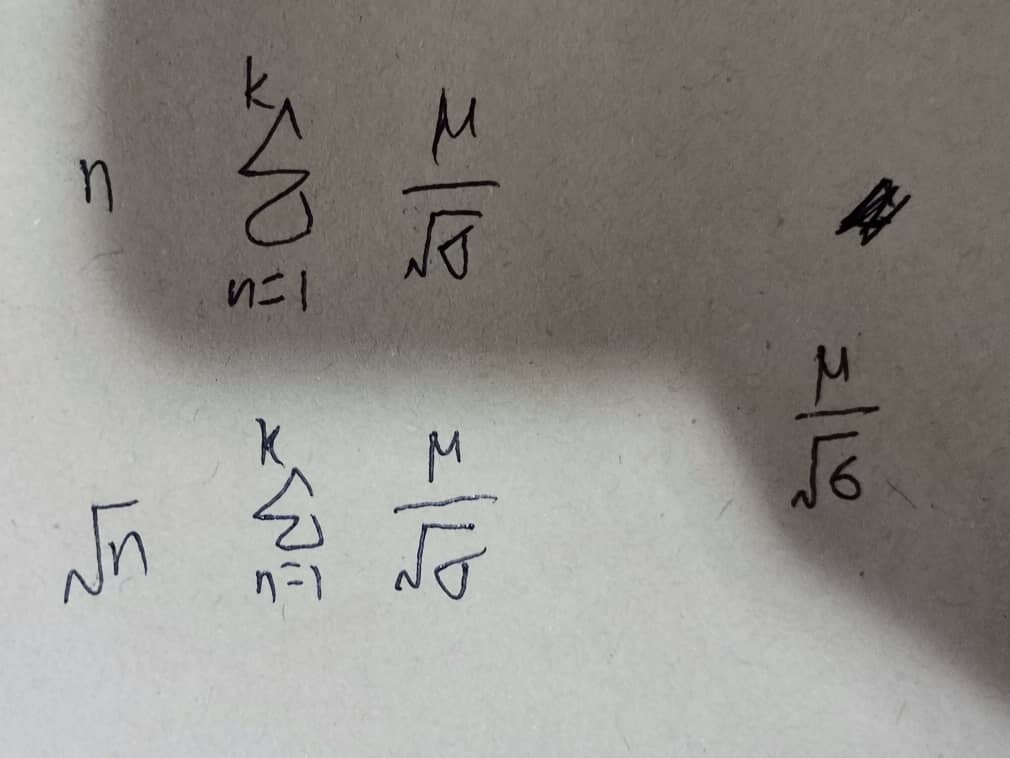 n \sum_{n=1}^{k} \frac{μ}{\sqrt{σ}}
\frac{μ}{\sqrt{6}}
\sqrt{n} \sum_{n=1}^{k} \frac{μ}{\sqrt{σ}}